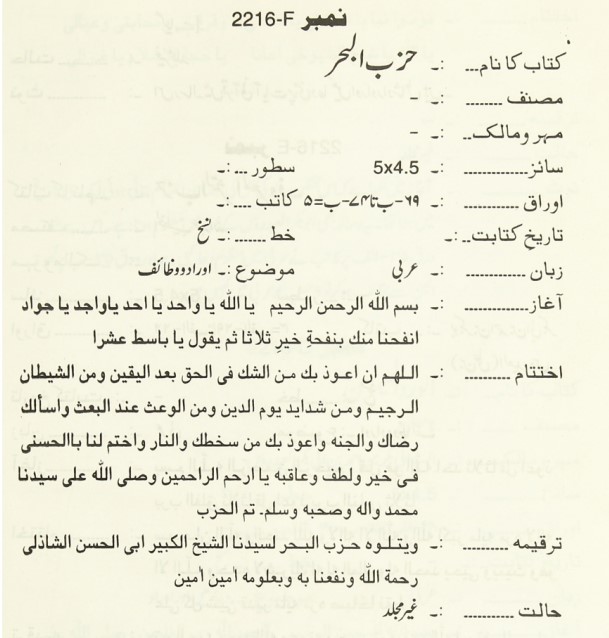 نمبر 2216-F
کتاب کا نام... :۔ حزب البحر
مصنف ........ :۔ -
مہر و مالک... :۔ -
سائز............ :۔ 5x4.5 سطور ... :۔
اوراق ......... :۔ ۶۹-ب تا ۷۴-ب=۵ کاتب .... :۔
تاریخ کتابت.. :۔ خط ...... :۔ نسخ
زبان ........... :۔ عربی موضوع :۔ اوراد و وظائف
آغاز ........... :۔ بسم الله الرحمن الرحيم يا الله يا واحد يا احد يا واجد يا جواد
انفحنا منك بنفحةِ خير ثلاثا ثم يقول يا باسط عشرا
اختتام ......... :۔ اللهم ان اعوذ بك من الشك فى الحق بعد اليقين ومن الشيطان
الرجيم ومن شدايد يوم الدين ومن الوعث عند البعث واسألك
رضاك والجنه واعوذ بك من سخطك والنار واختم لنا بالحسنى
فى خير ولطف وعاقبة يا ارحم الراحمين وصلى الله على سيدنا
محمد واله وصحبه وسلم. تم الحزب
ترقیمہ ......... :۔ ويتلوه حزب البحر لسيدنا الشيخ الكبير ابى الحسن الشاذلى
رحمة الله ونفعنا به وبعلومه آمين امين
حالت ......... :۔ غیر مجلد